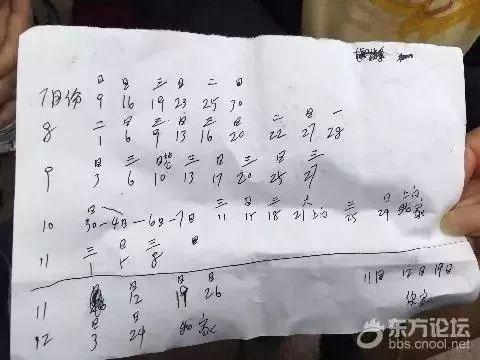 7月份 日 日 三 日 二 日
9 16 19 23 25 30
8 二 日 三 日 三 日 二 日 一
1 6 9 13 16 20 22 27 28
9 日 三 日 三 日 三 三
3 6 10 13 17 20 25 27
10 日 三 日 三 六 三 日 上门
30-4日-6日-7日 11 15 18 21上门 25 29
11 三 日 三
1 5 8
11 12 19 26 11日 12日 19日
12 日 日
3 24
东方论坛
bbs.cnool.net